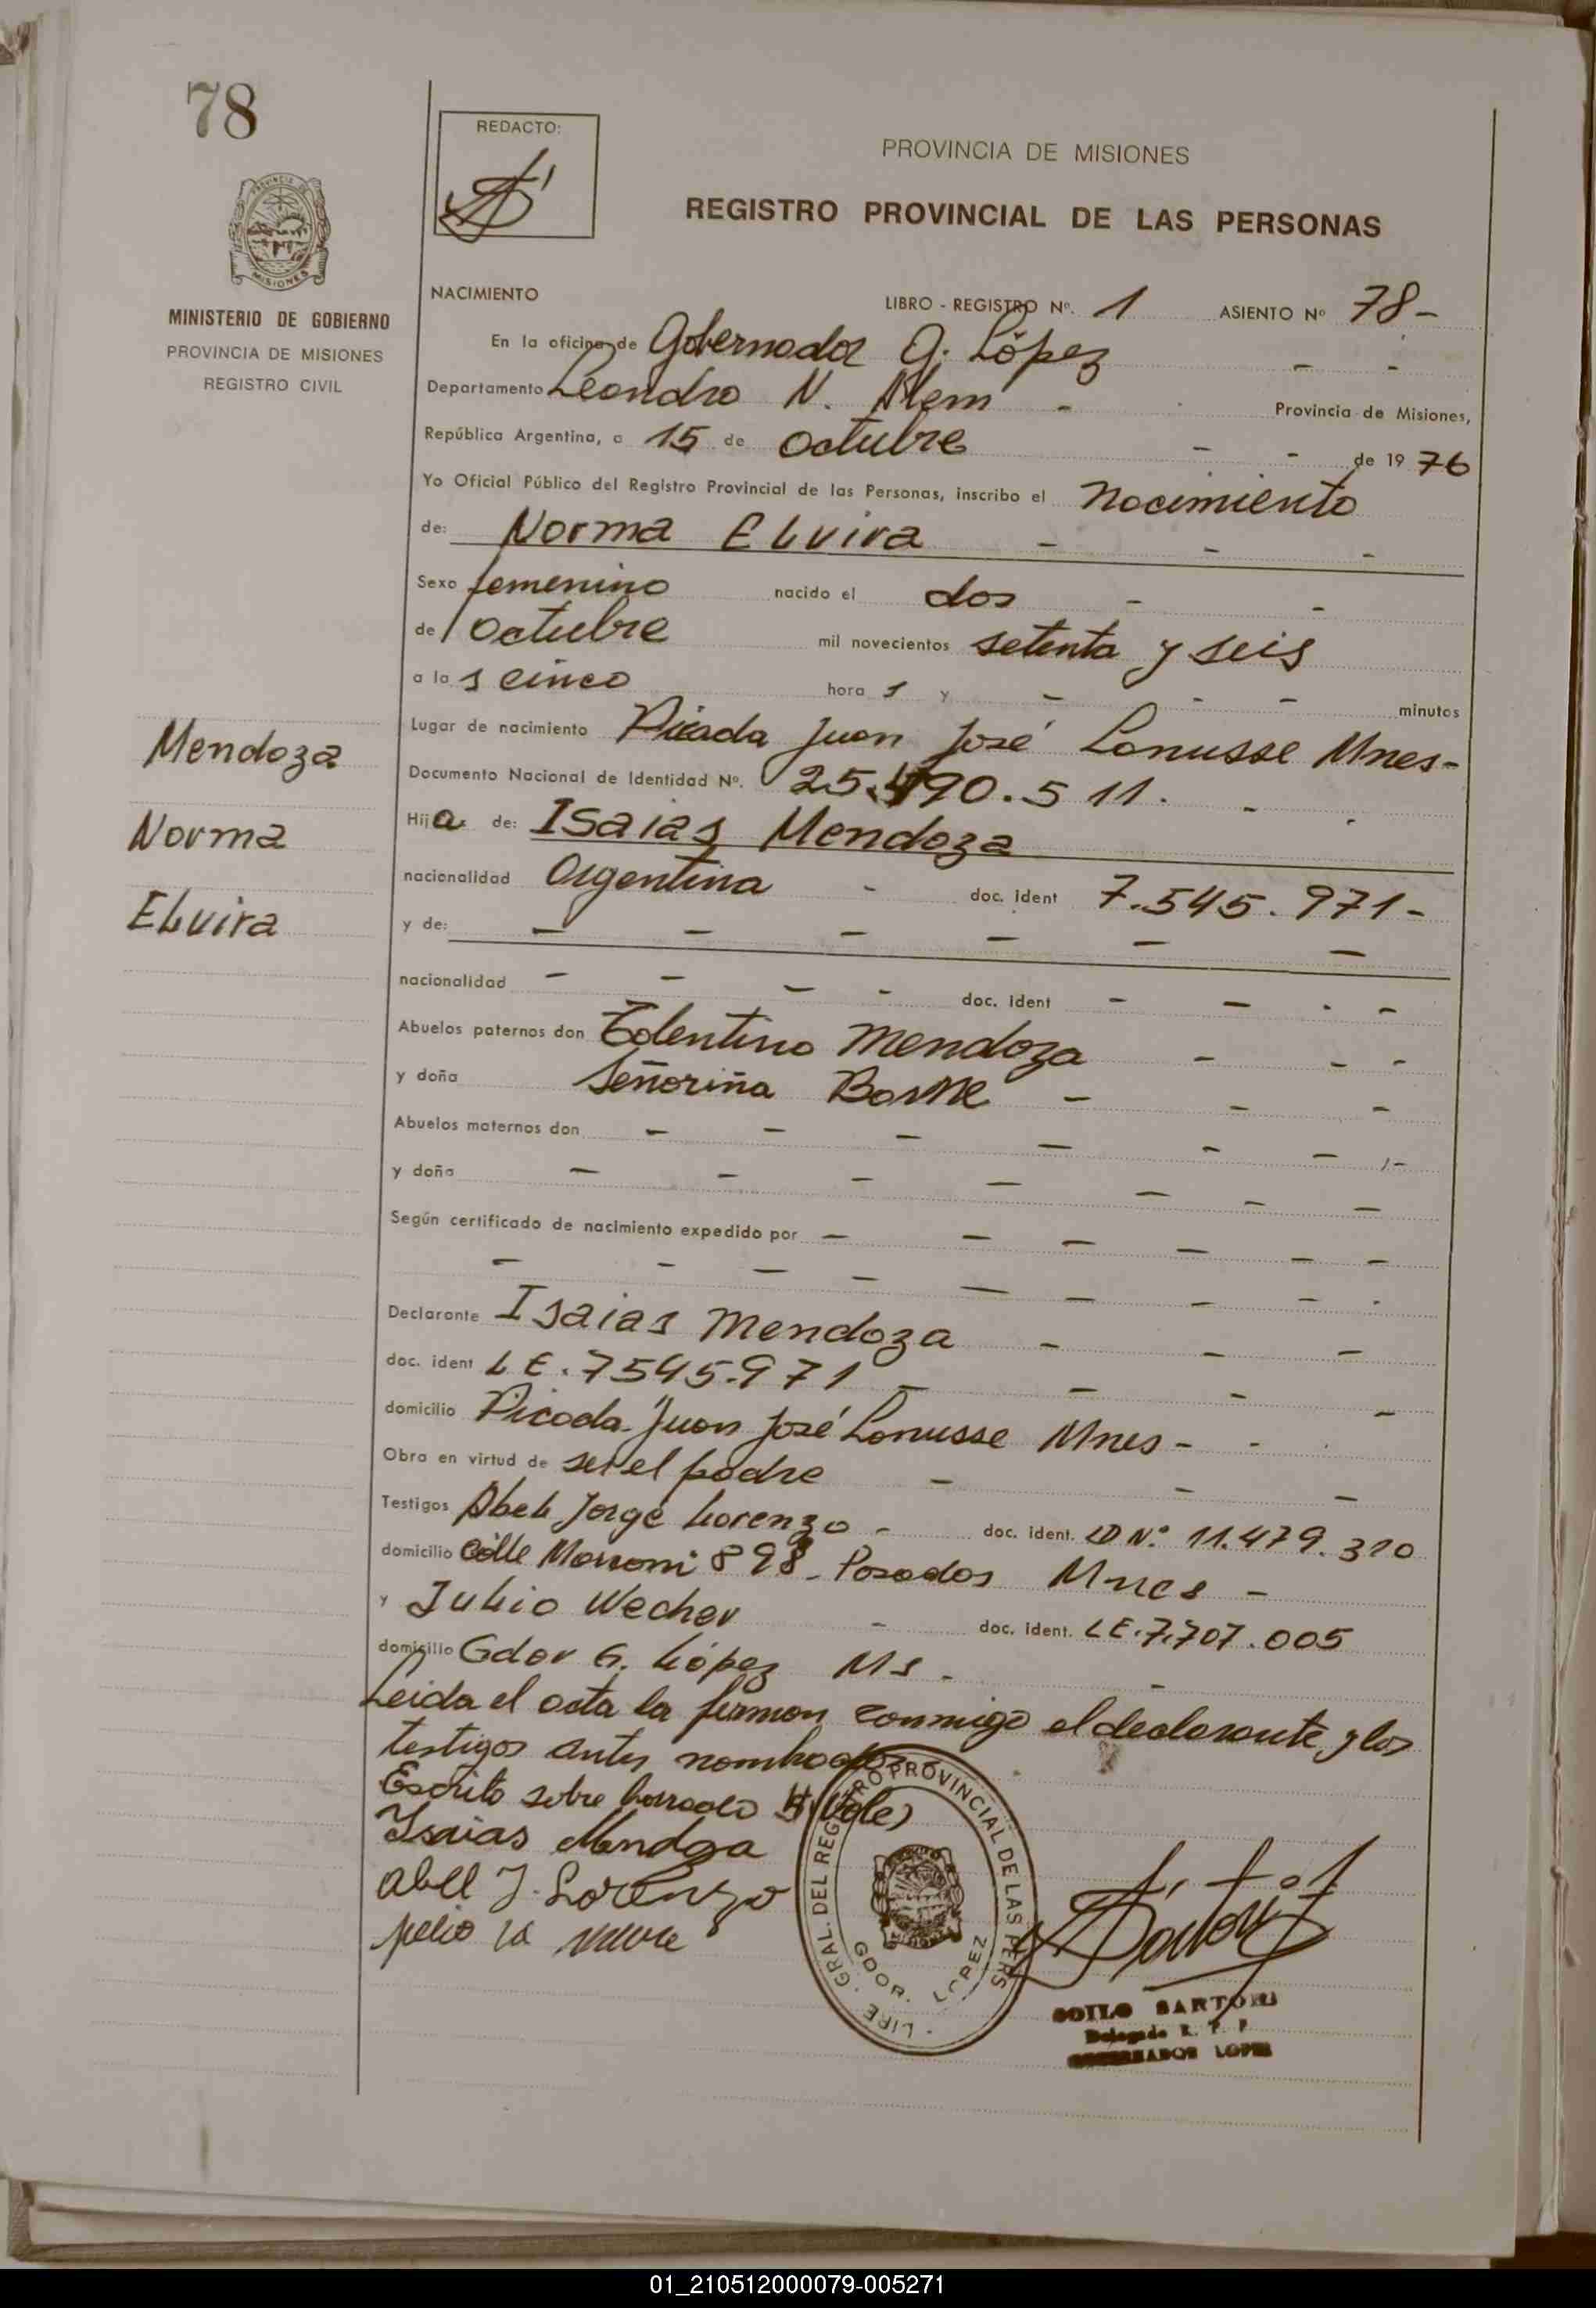 78
REDACTO:
PROVINCIA DE MISIONES
REGISTRO PROVINCIAL DE LAS PERSONAS
PROVINCIA DE
MISIONES
MINISTERIO DE GOBIERNO
PROVINCIA DE MISIONES
REGISTRO CIVIL
NACIMIENTO LIBRO - REGISTRO Nº. 1 ASIENTO Nº 78-
En la oficina de Gobernador G. López - -
Departamento Leandro N. Alem - Provincia de Misiones,
República Argentina, a 15 de octubre - - de 1976
Yo Oficial Público del Registro Provincial de las Personas, inscribo el nacimiento
de: Norma Elvira - - -
Sexo femenino nacido el dos - -
de octubre mil novecientos setenta y seis
a las cinco horas y - - - minutos
Lugar de nacimiento Picada Juan José Lanusse Mnes-
Documento Nacional de Identidad Nº. 25.490.511. - -
Mendoza
Norma
Elvira
Hija de: Isaias Mendoza
nacionalidad Argentina - doc. ident 7.545.971-
y de: - - - - - -
nacionalidad - - - - doc. ident - - - -
Abuelos paternos don Tolentino Mendoza - - -
y doña Señoriña - - -
Abuelos maternos don - - - - - - -
y doña - - - - - - -
Según certificado de nacimiento expedido por - - - - - -
- - - - - - - - -
Declarante Isaias Mendoza - - -
doc. ident LE. 7545.971 - - - -
domicilio Picada Juan José Lanusse Mnes - - -
Obra en virtud de ser el padre - - -
Testigos Abel Jorge Lorenzo - doc. ident. Nº 11.479.310
domicilio Calle 898 - Posadas Mnes -
y Julio Wecher - doc. ident. LE. 7.707.005
domicilio Gdor G. López Ms - -
Leida el acta la firman conmigo el declarante y los
testigos antes nombrados
Escrito sobre borrado 4 (Vale)
Isaias Mendoza
Abel J. Lorenzo
GRAL. DEL REGISTRO PROVINCIAL DE LAS PERS
GDOR. LOPEZ
SOILO SARTORI
Delegado R. P. P.
GOBERNADOR LOPEZ
01_210512000079-005271